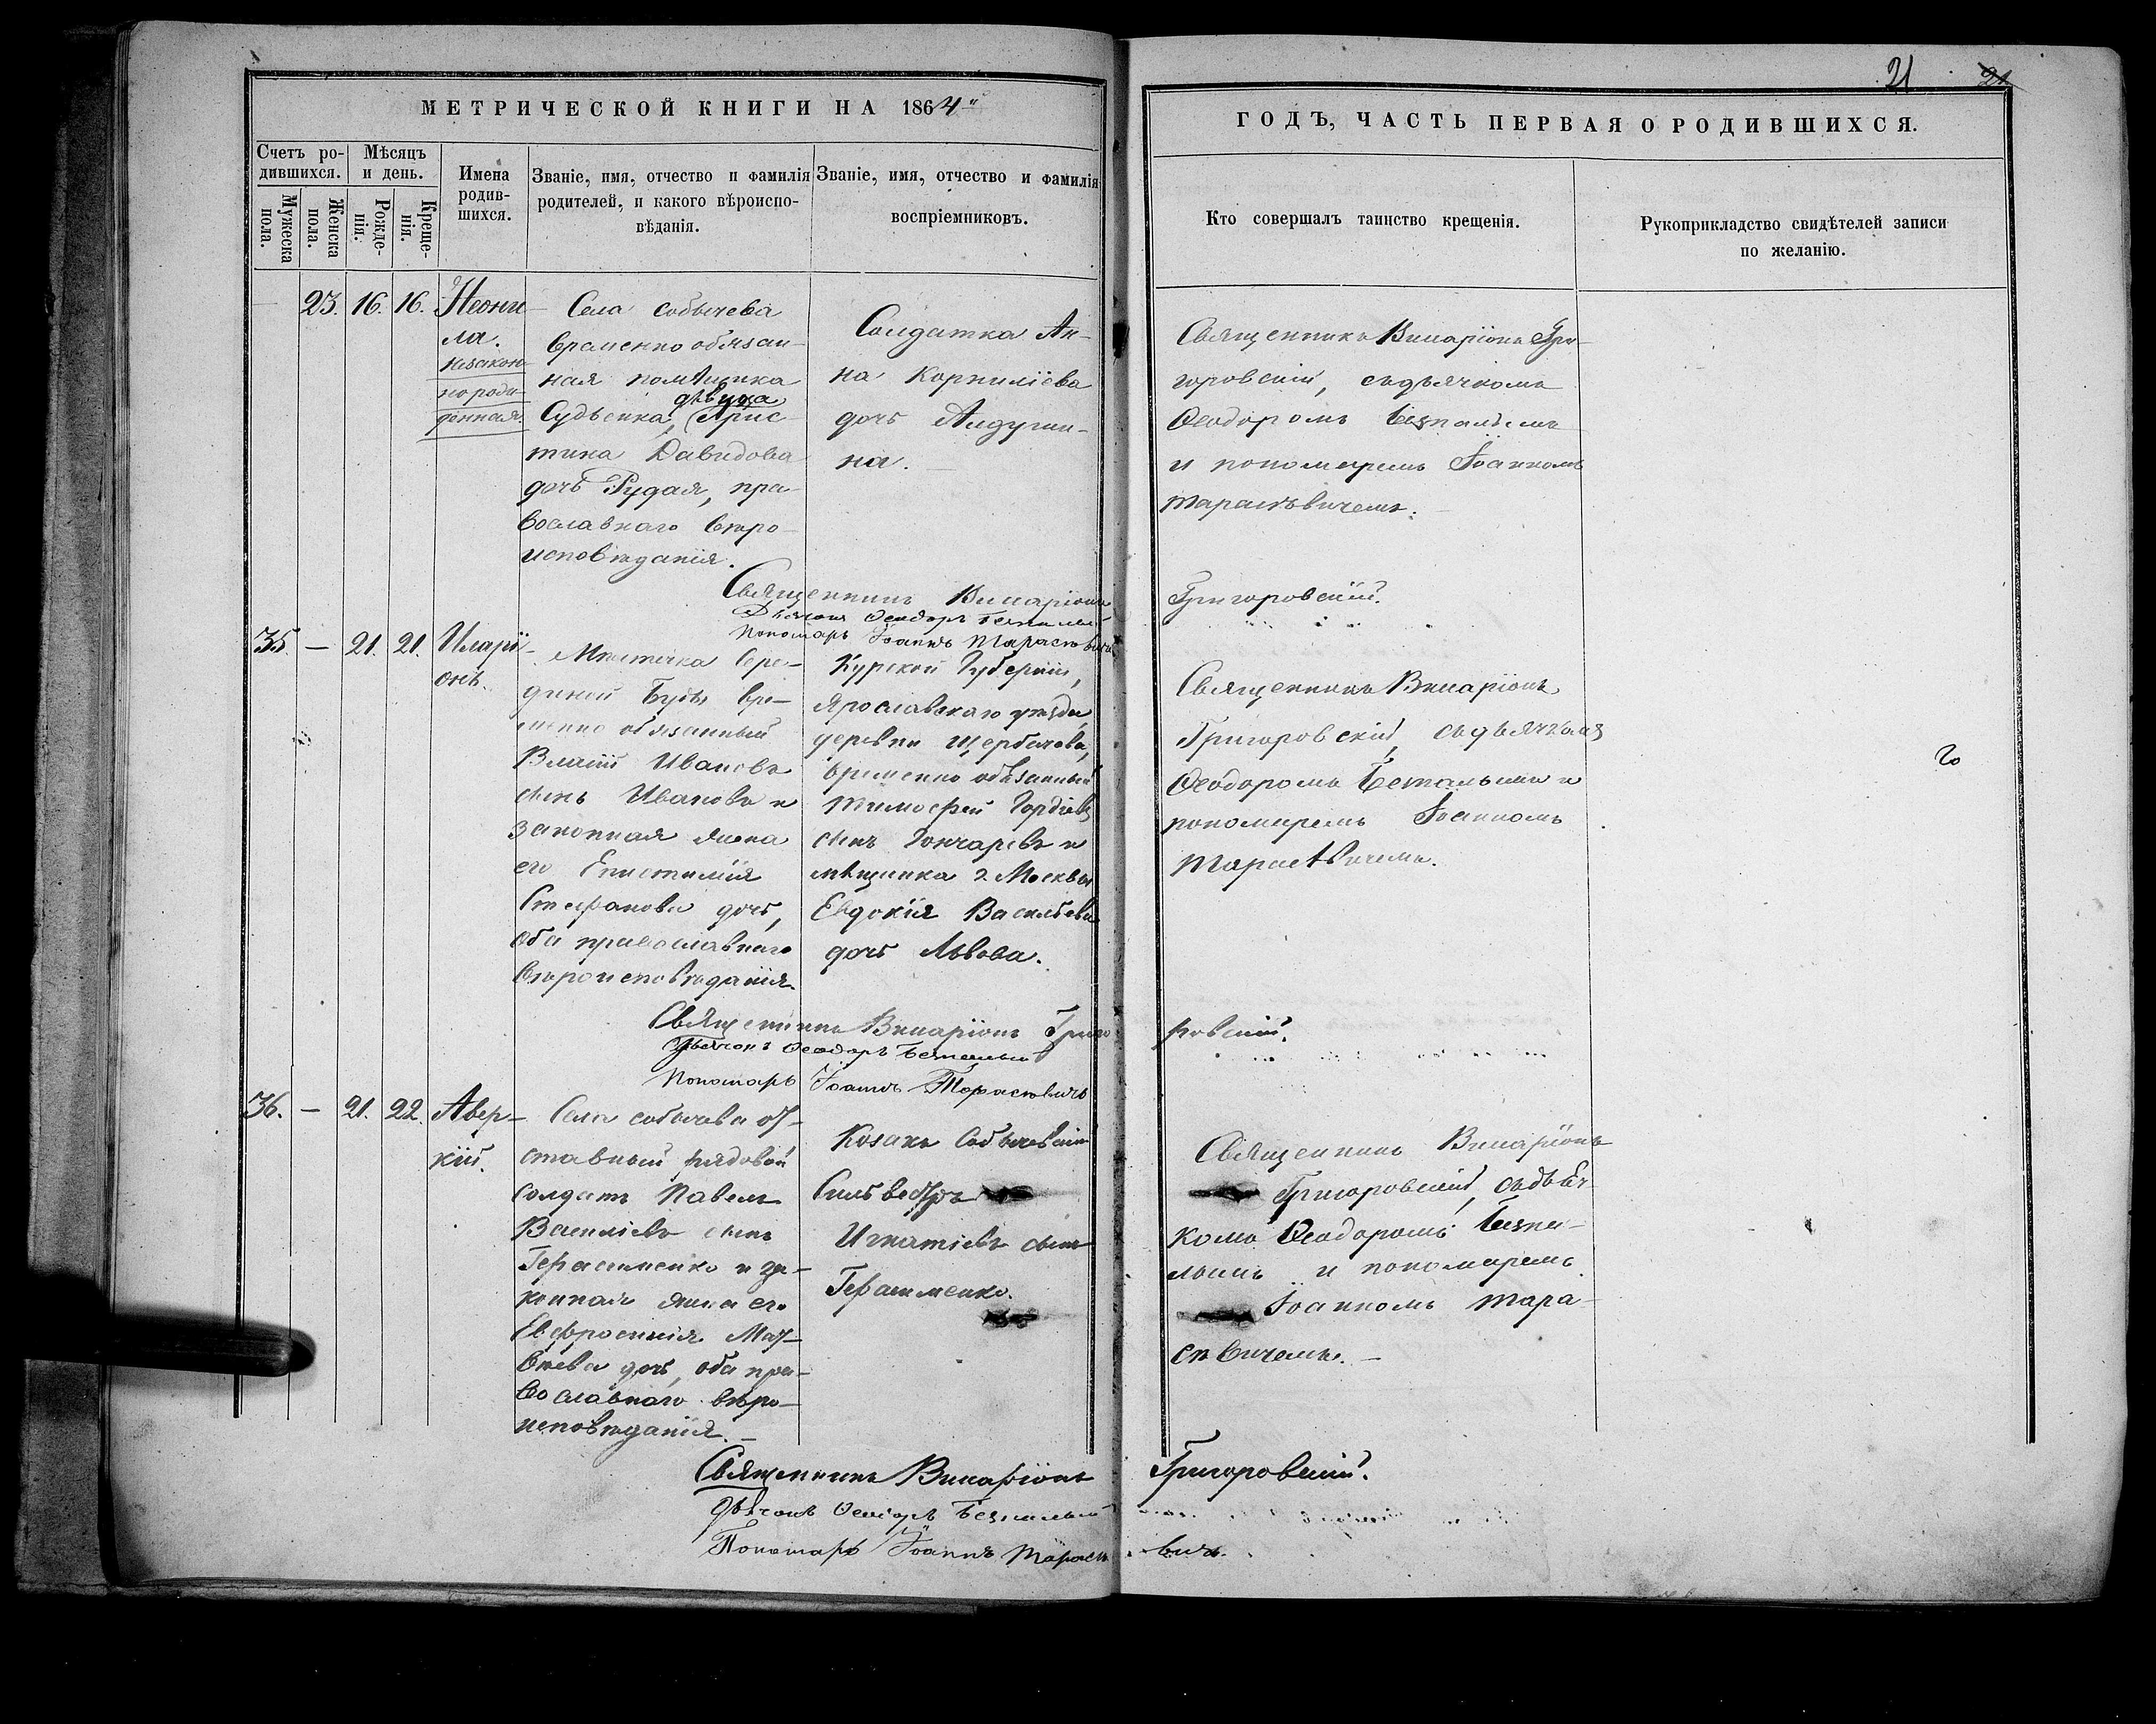 21 21
МЕТРИЧЕСКОЙ КНИГИ НА 1864
ГОДЪ, ЧАСТЬ ПЕРВАЯ О РОДИВШИХСЯ.
Счетъ родившихся.
Мужеска пола.
Женска пола.
Мѣсяцъ и день.
Рожденія.
Крещенія.
Имена родившихся.
Званіе, имя, отчество и фамилія
родителей, и какого вѣроиспо-
вѣданія.
Званіе, имя, отчество и фамилія
воспріемниковъ.
Кто совершалъ таинство крещенія.
Рукоприкладство свидѣтелей записи
по желанію.
23. 16. 16.
Неони-
ла.
незакон-
норож-
денная.
Села Собычева
временно обязан-
ная помѣщика
дѣвица
Судьенка, Хрис-
тина Давидова
дочь Рудая, пра-
вославнаго вѣро-
исповѣданія.
Солдатка Ан-
на Корниліева
дочь
на.
Священникъ Виларіонъ Гри-
горовскій, съ дьячкомъ
Ѳеодоромъ
и пономаремъ Іоанномъ
Тарасѣвичемъ.
Священникъ Иларіонъ
Григоровскій.
Дьячокъ Ѳеодоръ
Пономарь Іоаннъ Тарасѣвичъ
35. — 21. 21.
Иларі-
онъ.
Мѣстечка Сере-
диной Буды вре-
менно обязанный
Власій Ивановъ
сынъ Ивановъ и
законная жена
его Епистимія
Стефанова дочь,
оба православнаго
вѣроисповѣданія.
Курской Губерніи,
Ярославскаго уѣзда,
деревни Щербачова,
временно обязанный
Тимофей Гордіевъ
сынъ Гончаревъ и
мѣщанка г. Москвы
Евдокія Васильева
дочь Львова.
Священникъ Виларіонъ
Григоровскій, съ дьячкомъ
Ѳеодоромъ
пономаремъ Іоанномъ
Тарасѣвичемъ.
Священникъ Виларіонъ Григо
ровскій.
Дьячокъ Ѳеодоръ
Пономарь Іоаннъ Тарасѣвичъ
36. — 21. 22.
Авер-
кій.
Села Собычева от-
ставный рядовой
солдатъ Павелъ
Василіевъ сынъ
Герасименко и за-
конная жена его
Евфросинія Мат-
вѣева дочь, оба пра-
вославнаго вѣро-
исповѣданія.
Козакъ Собычевскій
Сильвестръ
Игнатіевъ сынъ
Герасименко.
Священникъ Виларіонъ
Григоровскій, съ дьяч-
комъ Ѳеодоромъ Безпа-
лымъ и пономаремъ
Іоанномъ Тара-
сѣвичемъ.
Священникъ Виларіонъ
Григоровскій.
Дьячокъ Ѳеодоръ Безпалый
Пономарь Іоаннъ Тарасѣ
вичъ.